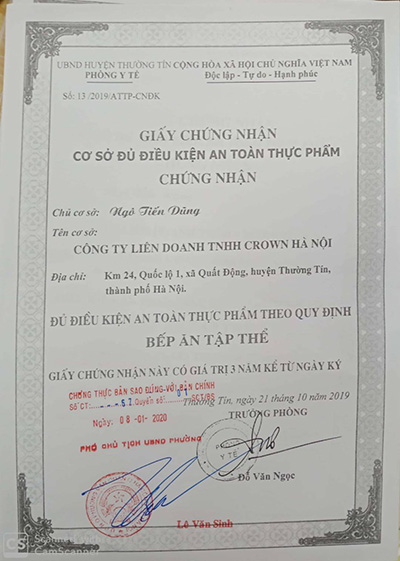 UBND HUYỆN THƯỜNG TÍN CỘNG HÒA XÃ HỘI CHỦ NGHĨA VIỆT NAM
PHÒNG Y TẾ Độc lập - Tự do - Hạnh phúc
Số: 13 /2019/ATTP-CNĐK
GIẤY CHỨNG NHẬN
CƠ SỞ ĐỦ ĐIỀU KIỆN AN TOÀN THỰC PHẨM
CHỨNG NHẬN
Chủ cơ sở: Ngô Tiến Dũng
Tên cơ sở:
CÔNG TY LIÊN DOANH TNHH CROWN HÀ NỘI
Địa chỉ: Km 24, Quốc lộ 1, xã Quất Động, huyện Thường Tín,
thành phố Hà Nội.
ĐỦ ĐIỀU KIỆN AN TOÀN THỰC PHẨM THEO QUY ĐỊNH
BẾP ĂN TẬP THỂ
GIẤY CHỨNG NHẬN NÀY CÓ GIÁ TRỊ 3 NĂM KỂ TỪ NGÀY KÝ
CHỨNG THỰC BẢN SAO ĐÚNG VỚI BẢN CHÍNH
Số CT: 57 Quyển số: 01 SCT/BS
Thường Tín, ngày 21 tháng 10 năm 2019
Ngày: 08 -01- 2020
TRƯỞNG PHÒNG
PHÓ CHỦ TỊCH UBND PHƯỜNG
PHÒNG
Y TẾ
Đỗ Văn Ngọc
Lê Văn Sinh
CS
CamScanner